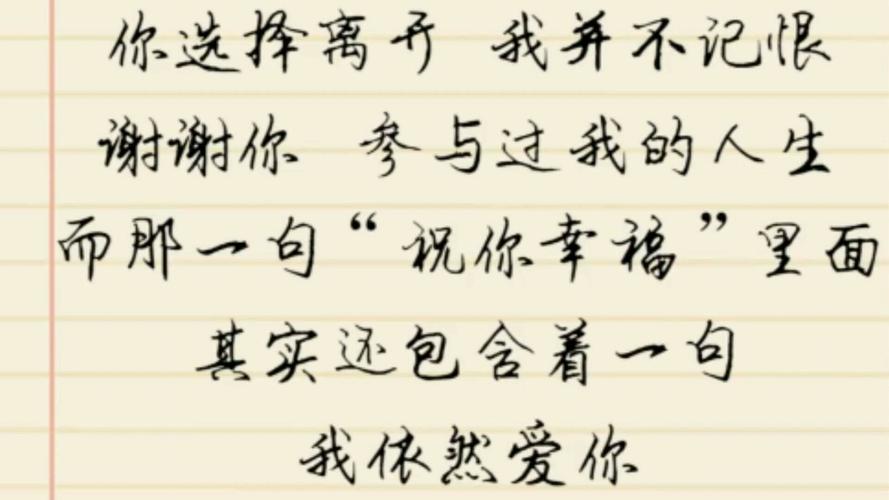 你选择离开 我并不记恨
谢谢你 参与过我的人生
而那一句“祝你幸福”里面
其实还包含着一句
我依然爱你